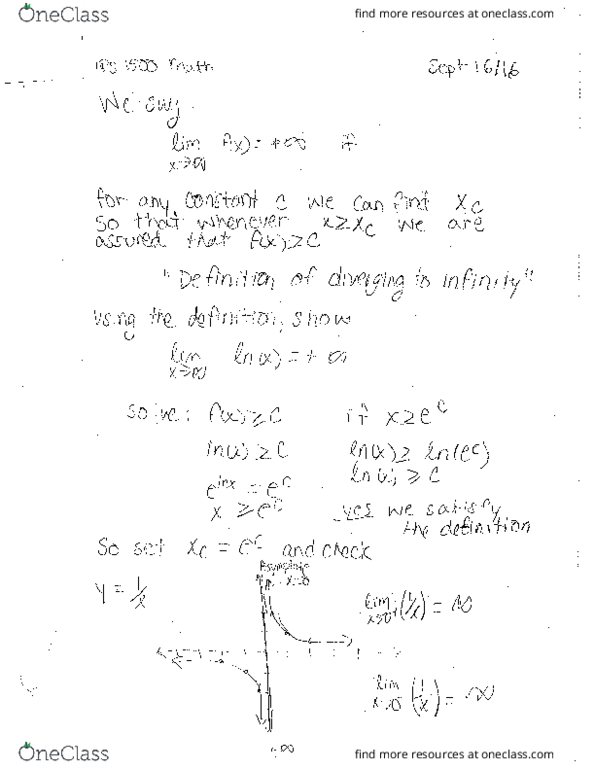 OneClass
find more resources at oneclass.com
1500 Math Sept 16/16
We say
lim f(x) = +∞ if
x→∞
for any constant c we can find xc
so that whenever x≥xc we are
assured that f(x)≥c
"Definition of diverging to infinity"
using the definition, show
lim ln(x) = +∞
x→∞
solve: f(x)≥c if x≥e^c
ln(x)≥c ln(x)≥ ln(e^c)
ln(x) ≥ c
e^lnx = e^c
x ≥e^c yes we satisfy
the definition
So set xc = e^c and check
Asymptote
x=0
y = 1/x
lim (1/x) = ∞
x→0+
lim (1/x) = -∞
x→0-
OneClass
find more resources at oneclass.com